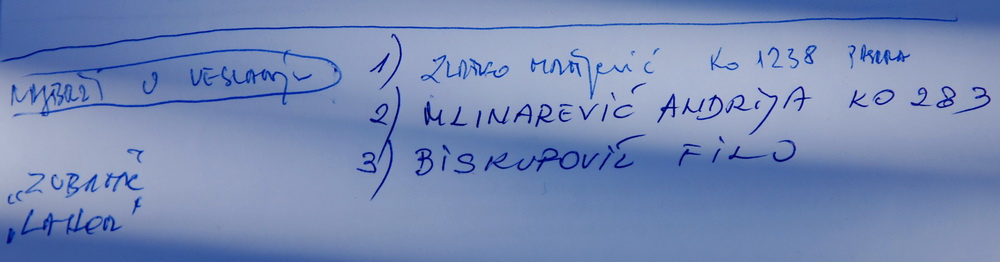 NAJBRŽI U VESLANJU
1) ZLATKO MATIJEVIĆ KO 1238 PASARA
2) MLINAREVIĆ ANDRIJA KO 283
3) BISKUPOVIĆ FILO
„ZUBATAC“
„LAHOR“